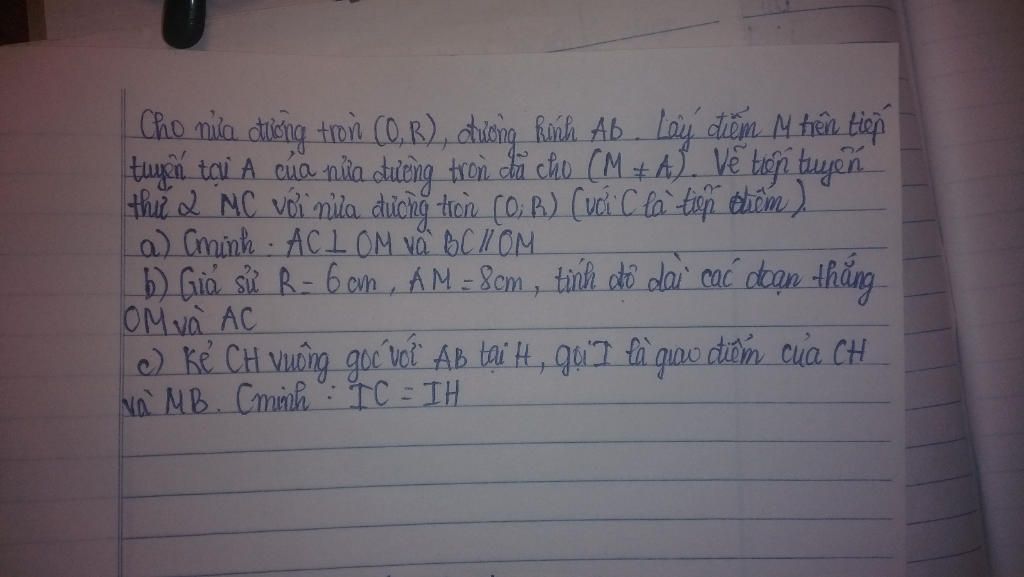 Cho nửa đường tròn (O,R), đường kính AB. Lấy điểm M trên tiếp
tuyến tại A của nửa đường tròn đã cho (M ≠ A). Vẽ tiếp tuyến
thứ 2 MC với nửa đường tròn (O; R) (với C là tiếp điểm).
a) Cminh : AC ⊥ OM và BC // OM
b) Giả sử R = 6 cm, AM = 8cm, tính độ dài các đoạn thẳng
OM và AC
c) Kẻ CH vuông góc với AB tại H, gọi I là giao điểm của CH
và MB. Cminh : IC = IH